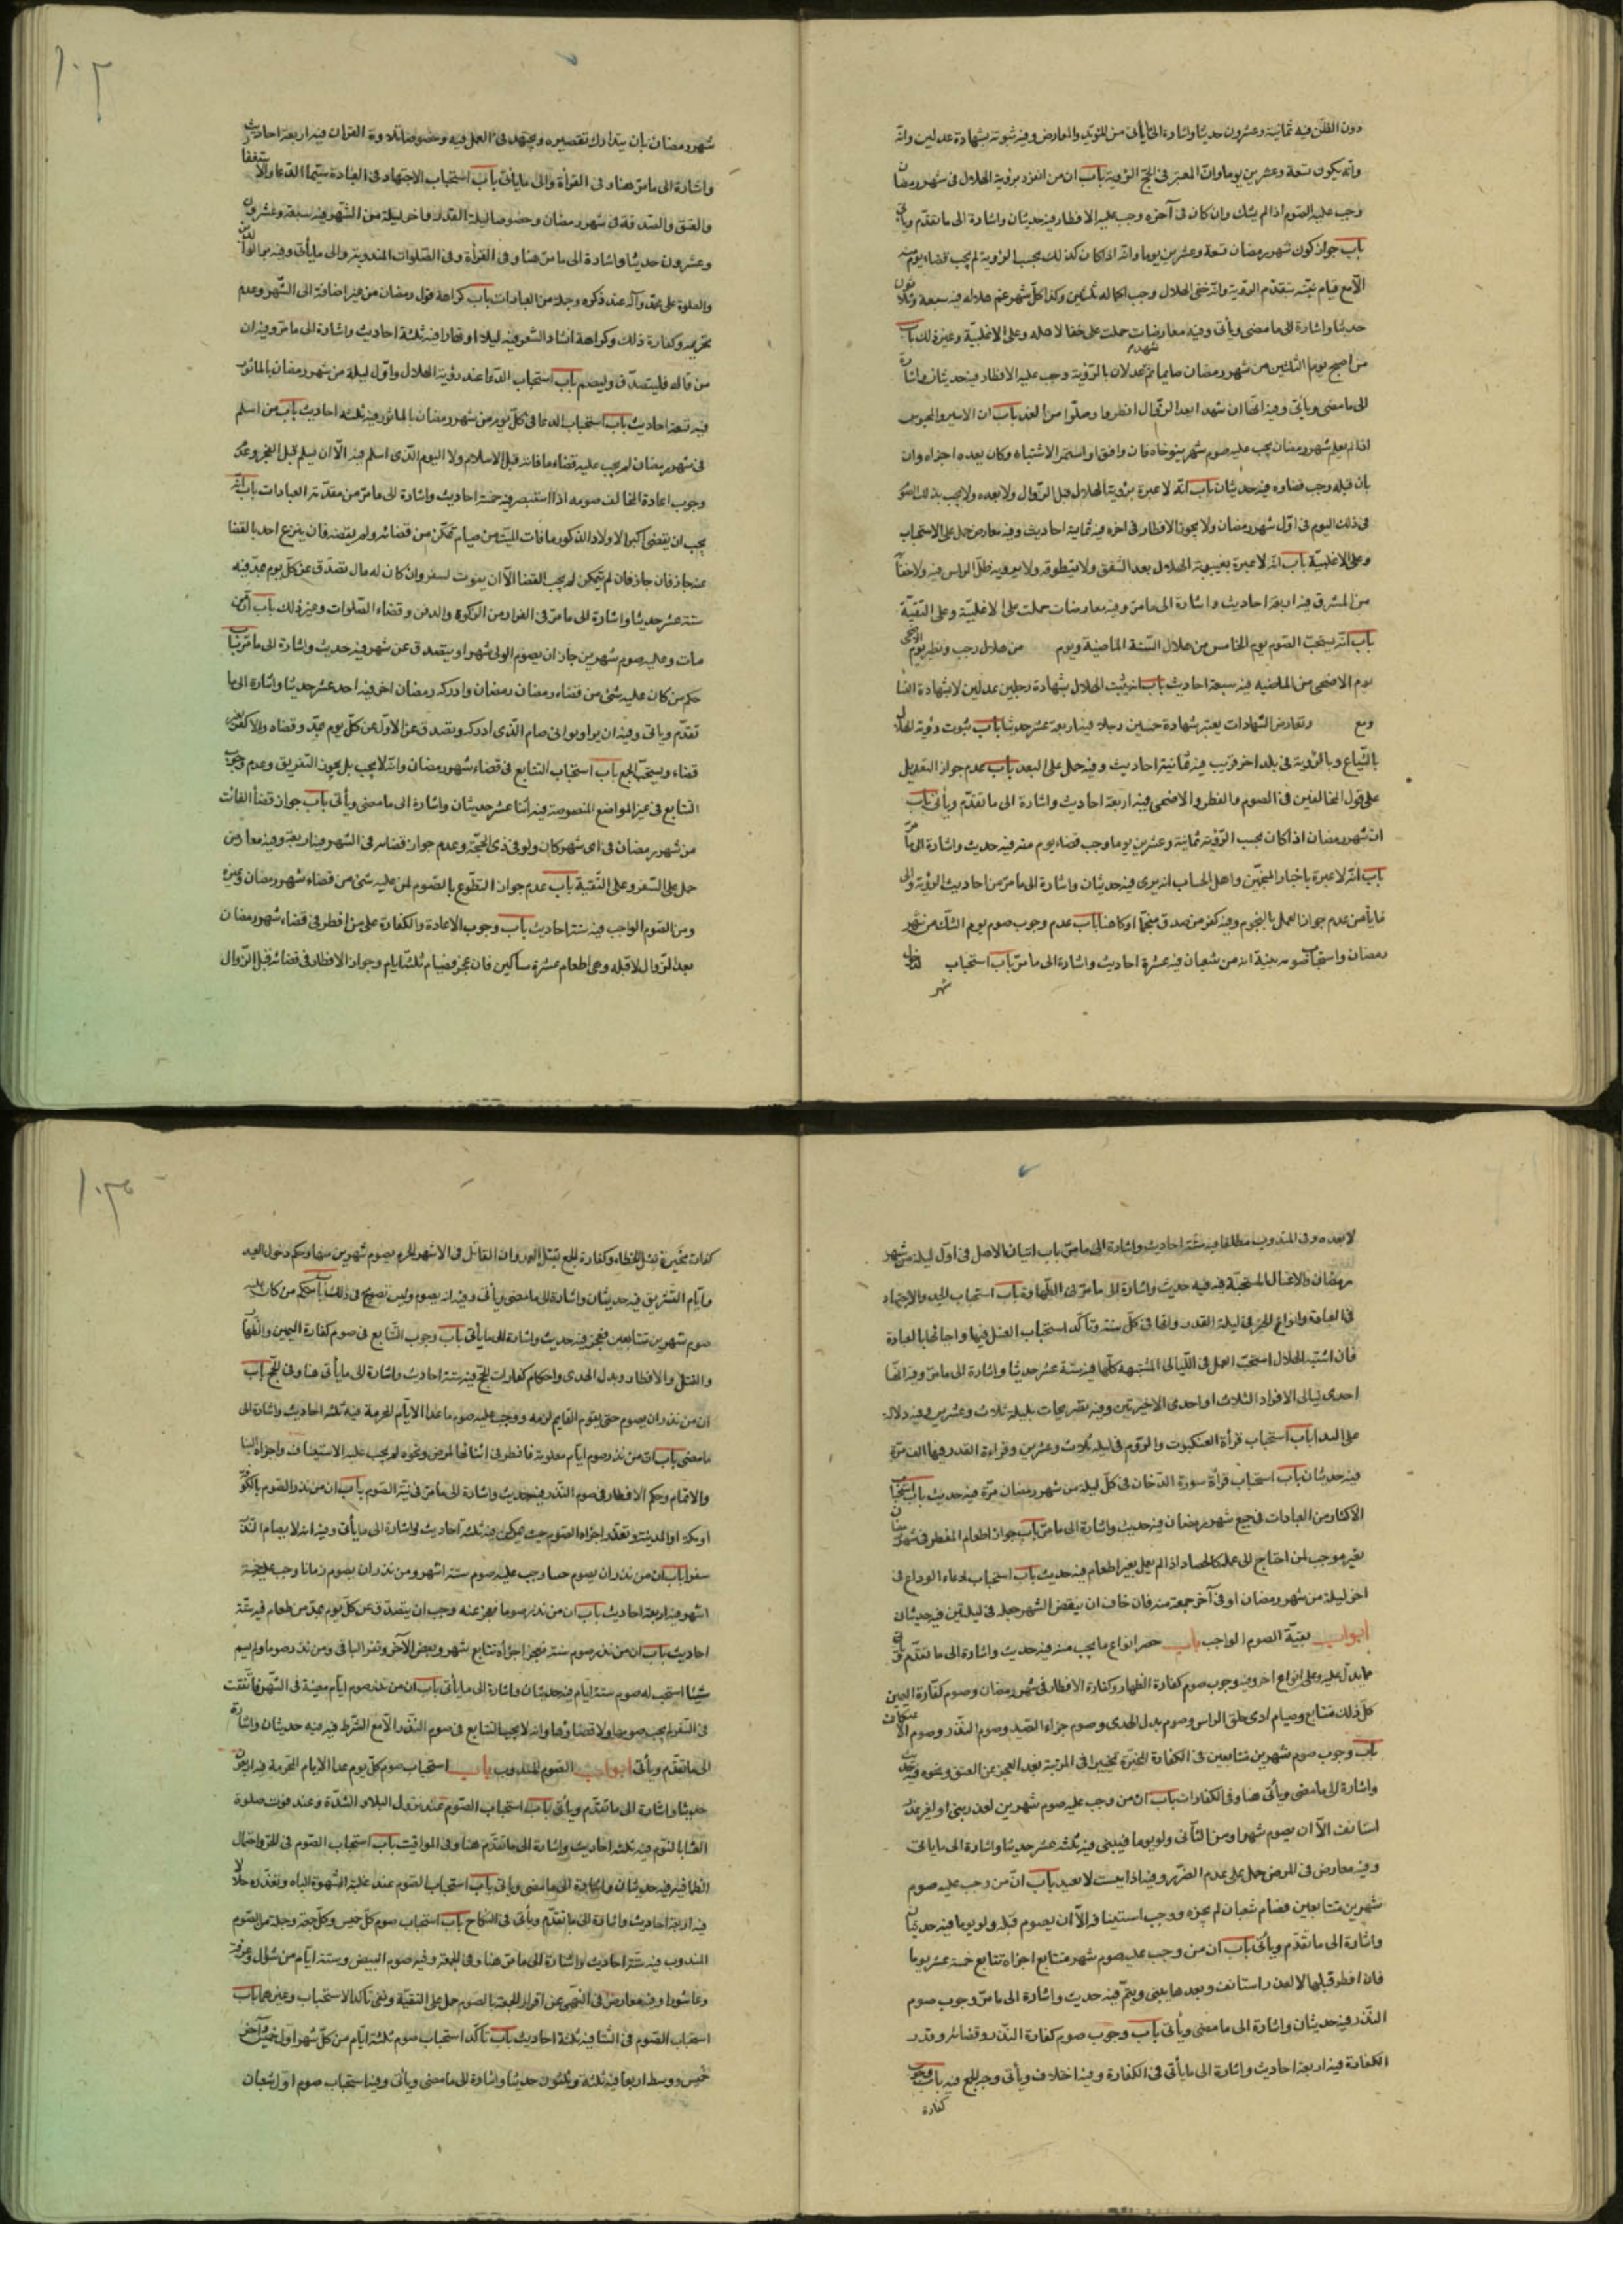 دون الظن فيه ثمانية وعشرون حديثا واشارة الى ما يأتى من المؤيد والمعارض وفيه ثبوته بشهادة عدلين وانه
وانه يكون تسعة وعشرين يوما وان المعتبر فى الحج الرؤية باب ان من انفرد برؤية الهلال فى شهر رمضان
وجب عليه الصوم اذا لم يشك وان كان فى آخره وجب عليه الافطار فيه حديثان واشارة الى ما تقدم ويأتى
باب جواز كون شهر رمضان تسعة وعشرين يوما وانه اذا كان كذلك بحسب الرؤية لم يجب قضاء يوم منه
الا مع قيام بينة بتقدم الرؤية وانه خفى الهلال وجب اكماله ثلثين وكذا كل شهر غم هلاله فيه سبعة وثلاثون
حديثا واشارة الى ما مضى ويأتى وفيه معارضات حملت على خفا لا صله وعلى الاغلبية وغير ذلك باب
من اصبح يوم الثلثين من شهر رمضان صايما ثم شهد عدلان بالرؤية وجب عليه الافطار فيه حديثان واشارة
الى ما مضى ويأتى وفيه انهما ان شهدا بعد الزوال افطروا وصلوا من الغد باب ان الاسير والمحبوس
اذا لم يعلم شهر رمضان يجب عليه صوم شهر يتوخاه فان وافق او استمر الاشتباه وكان بعده اجزاه وان
بان قبله وجب قضاوه فيه حديثان باب انه لا عبرة برؤية الهلال قبل الزوال ولا بعده ولا يجب بذلك الصوم
فى ذلك اليوم فى اول شهر رمضان ولا يجوز الافطار فى اخره فيه ثمانية احاديث وفيه معارض حمل على الاستحباب
وعلى الاغلبية باب انه لا عبرة بغيبوبة الهلال بعد الشفق ولا بتطوقه ولا برؤية ظل الراس فيه ولا خفائه
من المشرق فيه اربعة احاديث واشارة الى ما مر وفيه معارضات حملت على الاغلبية وعلى التقية
باب انه يستحب الصوم يوم الخامس من هلال السنة الماضية ويوم من هلال رجب ونظير يوم الاضحى
يوم الاضحى من الماضيه فيه سبعة احاديث باب انه يثبت الهلال بشهادة رجلين عدلين لا بشهادة النسا
ومع وتعارض الشهادات يعتبر شهادة خمسين رجلا فيه اربعة عشر حديثا باب ثبوت رؤية الهلال
بالشياع وبالرؤية فى بلد اخر قريب فيه ثمانية احاديث وفيه حمل على البعد باب عدم جواز التعويل
على قول المخالفين فى الصوم والفطر والاضحى فيه اربعة احاديث واشارة الى ما تقدم ويأتى باب
ان شهر رمضان اذا كان بحسب الرؤية ثمانية وعشرين يوما وجب قضاء يوم منه فيه حديث واشارة الى ما مر
باب انه لا عبرة باخبار المنجمين واهل الحساب انه يرى فيه حديثان واشارة الى ما مر من احاديث الرؤية والى
ما يأتى من عدم جواز العمل بالنجوم وفيه كفر من صدق منجما او كاهنا باب عدم وجوب صوم يوم الشك من شهر
رمضان واستحباب صومه بنية انه من شعبان فيه عشرة احاديث واشارة الى ما مر باب استحباب
شهر
شهر رمضان بان يتدارك تقصيره ويجتهد فى العمل فيه وخصوصا تلاوة القران فيه اربعة احاديث
واشارة الى ما مر هنا وفى القرأة والى ما يأتى باب استحباب الاجتهاد فى العبادة سيما الدعا والاستغفار
والعتق والصدقة فى شهر رمضان وخصوصا ليلة القدر واخر ليلة من الشهر فيه سبعة وعشرون
وعشرون حديثا واشارة الى ما مر هنا وفى القرأة وفى الصلوات المندوبة والى ما يأتى وفيه بر الوالدين
والصلوة على محمد وآله عند ذكره وجملة من العبادات باب كراهة قول رمضان من غير اضافة الى الشهر وعدم
تحريمه وكفارة ذلك وكراهة انشاد الشعر فيه ليلا او نهارا فيه ثلثة احاديث واشارة الى ما مر وفيه ان
من قاله فليتصدق وليصم باب استحباب الدعا عند رؤية الهلال واول ليلة من شهر رمضان بالماثور
فيه تسعة احاديث باب استحباب الدعا فى كل يوم من شهر رمضان بالماثور فيه ثلثه احاديث باب من اسلم
فى شهر رمضان لم يجب عليه قضاء ما فاته قبل الاسلام ولا اليوم الذى اسلم فيه الا ان يسلم قبل الفجر وعدم
وجوب اعادة المخالف صومه اذا استبصر فيه خمسة احاديث واشارة الى ما مر من مقدمة العبادات باب انه
يجب ان يقضى اكبر الاولاد الذكور ما فات الميت من صيام تمكن من قضائه ولم يقضه فان تبرع احد بالقضا
عنه جاز فان لم يتمكن لم يجب القضا الا ان يفوت لسفر وان كان له مال تصدق عن كل يوم بمد فيه
ستة عشر حديثا واشارة الى ما مر فى الفرادمن الزكوة والدفن وقضاء الصلوات وغير ذلك باب ان من
مات وعليه صوم شهرين جاز ان يصوم الولى شهرا ويتصدق عن شهر فيه حديث واشارة الى ما مر باب
حكم من كان عليه شئ من قضاء رمضان وادركه رمضان اخر فيه احد عشر حديثا واشارة الى ما
تقدم وياتى وفيه ان برا وتوانى صام الذى ادركه وتصدق عن الاول عن كل يوم بمد وقضاه والا كفر من غير
قضاء ويستحب الجمع باب استحباب التتابع فى قضاء شهر رمضان وانه لا يجب بل يجوز التفريق وعدم وجوب
التتابع فى غير المواضع المنصوصة فيه اثنا عشر حديثان واشارة الى ما مضى ويأتى باب جواز قضأ الفائت
من شهر رمضان فى اى شهر كان ولو فى ذى الحجة وعدم جواز قضائه فى السفر فيه اربعة وفيه معارض
حمل على السفر وعلى التقية باب عدم جواز التطوع بالصوم لمن عليه شئ من قضاء شهر رمضان وغيره
ومن الصوم الواجب فيه ستة احاديث باب وجوب الاعادة والكفارة على من افطر فى قضاء شهر رمضان
بعد الزوال لا قبله وهى اطعام عشرة مساكين فان عجز فصيام ثلثة ايام وجواز الافطار فى قضائه قبل الزوال
لا بعده وفى المندوب مطلقا فيه ستة احاديث واشارة الى ما مر باب اتيان الاهل فى اول ليلة من شهر
رمضان والاغسال المستحبة فيه فيه حديث واشارة الى ما مر فى الطهارة باب استحباب الجد والاجتهاد
فى العبادة وانواع الخير فى ليلة القدر وانها فى كل سنة وتاكد استحباب الغسل فيها واحيائها بالعبادة
فان اشتبه الهلال استحب العمل فى الليالى المشتبهة كلها فيه ستة عشر حديثا واشارة الى ما مر وفيه انها
احدى ليالى الافراد الثلاث او احدى الاخيرتين وفيه تصريحات بليلة ثلاث وعشرين وفيه دلالة
باب استحباب قرأة العنكبوت والروم فى ليلة ثلاث وعشرين وقراءة القدر فيها الف مرة
فيه حديثان باب استحباب قرأة سورة الدخان فى كل ليلة من شهر رمضان مرة فيه حديث باب استحباب
الاكثار من العبادات فى جميع شهر رمضان فيه حديث واشارة الى ما مر باب جواز اطعام المفطر فى شهر رمضان
بغير موجب لمن احتاج الى عمله كالحصاد اذا لم يعمل بغير اطعام فيه حديث باب استحباب دعاء الوداع فى
اخر ليلة من شهر رمضان او فى آخر جمعة منه فان خاف ان ينقص الشهر جعله فى ليلتين فيه حديثان
ابواب بقية الصوم الواجب باب حصر انواع ما يجب منه فيه حديث واشارة الى ما تقدم ويأتى
مما يدل عليه وعلى انواع اخر وفيه وجوب صوم كفارة الظهار وكفارة الافطار فى شهر رمضان وصوم كفارة اليمين
كل ذلك متتابع وصيام اذى حلق الراس وصوم بدل الهدى وصوم جزاء الصيد وصوم النذر وصوم الاعتكاف
باب وجوب صوم شهرين متتابعين فى الكفارة المخيرة تخييرا فى المرتبة بعد العجز عن العتق ونحوه فيه حديث
واشارة الى ما مضى ويأتى هنا وفى الكفارات باب ان من وجب عليه صوم شهرين لعذر يبنى او لغير عذر
استانف الا ان يصوم شهرا ومن الثانى ولو يوما فيبنى فيه ثلثه عشر حديثا واشارة الى ما ياتى
وفيه معارض فى المرض حمل على عدم الضرر وفيه اذا يبست لا يعيد باب ان من وجب عليه صوم
شهرين متتابعين فصام شعبان لم يجزه ووجب استينافه الا ان يصوم قبله ولو يوما فيه حديثان
واشارة الى ما تقدم ويأتى باب ان من وجب عليه صوم شهر متتابع اجزاه تتابع خمسة عشر يوما
فان افطر قبلها لا لعذر استانف وبعدها يبنى ويتم فيه حديث واشارة الى ما مر وجوب صوم
النذر فيه حديثان واشارة الى ما مضى ويأتى باب وجوب صوم كفارة النذر وقضائه وقدر
الكفارة فيه اربعة احاديث واشارة الى ما يأتى فى الكفارة وفيه اختلاف ويأتى وجه الجمع فيه باب وجوب
كفارة
كفارة مخيرة لقتل الخطاء وكفارة الجمع بقتل العمد وان القاتل فى الاشهر الحرم يصوم شهرين منها وحكم دخول العيد
وايام التشريق فيه حديثان واشارة الى ما مضى ويأتى وفيه انه يصوم وليس تصريح فى ذلك باب حكم من كان عليه
صوم شهرين متتابعين فعجز فيه حديث واشارة الى ما يأتى باب وجوب التتابع فى صوم كفارة اليمين والظهار
والقتل والافطار وبدل الهدى واحكام كفارات الحج فيه ستة احاديث واشارة الى ما يأتى هنا وفى الحج باب
ان من نذر ان يصوم حتى يقوم القايم لزمه ووجب عليه صوم ما عدا الايام المحرمة فيه ثلثه احاديث واشارة الى
ما مضى باب ان من نذر صوم ايام معدودة فافطر فى اثنائها لمرض ونحوه لم يجب عليه الاستيناف واجزاه البنا
والاتمام وحكم الافطار فى صوم النذر فيه حديث واشارة الى ما مر فى نية الصوم باب ان من نذر الصوم بالكوفة
او بمكة او المدينة وتعذر اجزاه الصوم حيث يمكن فيه ثلثه احاديث واشارة الى ما يأتى وفيه انه لا يصام النذر
سفرا باب ان من نذر ان يصوم حينا وجب عليه صوم ستة اشهر ومن نذر ان يصوم زمانا وجب عليه خمسة
اشهر فيه اربعة احاديث باب ان من نذر صوما فعجز عنه وجب ان يتصدق عن كل يوم بمد من طعام فيه ستة
احاديث باب ان من نذر صوم سنة فعجز اجزأه تتابع شهر وبعض الآخر وتفرق الباقى ومن نذر صوما ولم يسم
شيئا استحب له صوم ستة ايام فيه حديثان واشارة الى ما يأتى باب ان من نذر صوم ايام معينة فى الشهر فاتفقت
فى السفر لم يجب صومها ولا قضاؤها وانه لا يجب التتابع فى صوم النذر الا مع الشرط فيه فيه حديثان واشارة
الى ما تقدم ويأتى ابواب الصوم المندوب باب استحباب صوم كل يوم عدا الايام المحرمة فيه اربعون
حديثا واشارة الى ما تقدم ويأتى باب استحباب الصوم عند نزول البلاء والشدة وعند فوت صلوة
العشا بالنوم فيه ثلثه احاديث واشارة الى ما تقدم هنا وفى المواقيت باب استحباب الصوم فى الحر واحتمال
الظما فيه فيه حديثان واشارة الى ما مضى وياتى باب استحباب الصوم عند غلبة الشهوة الباه وتعذره حلالا
فيه اربعة احاديث واشارة الى ما تقدم ويأتى فى النكاح باب استحباب صوم كل خميس وكل جمعة وجملة من الصوم
المندوب فيه ستة احاديث واشارة الى ما مر هنا وفى الجمعة وفيه صوم البيض وستة ايام من شوال وعرفة
وعاشورا وفيه معارض فى النهى عن افراد الجمعة بالصوم حمل على التقية ونفى تاكد الاستحباب وغيرهما باب
استحباب الصوم فى الشتا فيه ثلثة احاديث باب تأكد استحباب صوم ثلثة ايام من كل شهر اول خميس وآخر
خميس ووسط اربعا فيه ثلثة وثلثون حديثا واشارة الى ما مضى ويأتى وفيه استحباب صوم اول شعبان